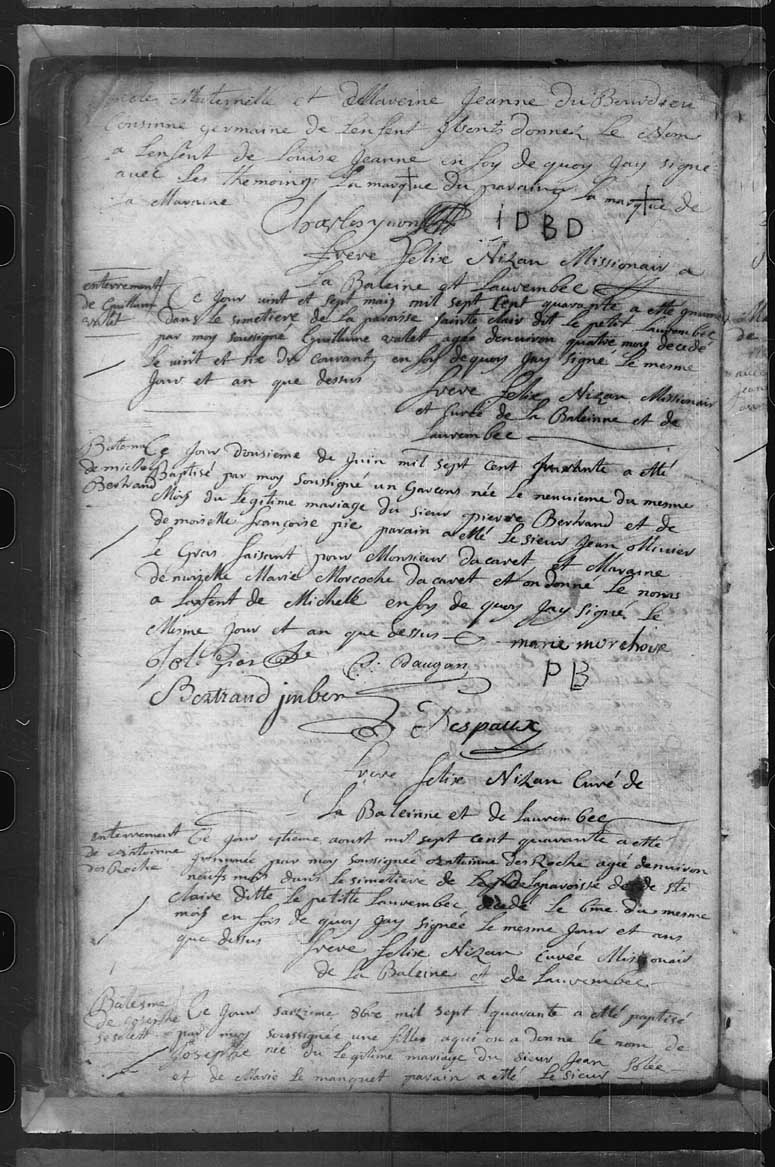 oncle Maternelle et de Maraine Jeanne du Bourdieu
Cousinne germaine de Lenfent ils ont donnez Le Nom
a Lenfent de Louise Jeanne en foy de quoy Jay signé
avec Les themoings La marque du parain La marque de
La Maraine
Charles IDBD
frere felix Nizan Missionair a
La Baleine et Laurembec
enterrement
de Guillum
valet
Ce Jour vint et sept mais mil sept Cent quarante a etté
dans le simetiere de La paroisse sainte clair dit le petit Laurembec
par moy soussigné Guillume valet agée denviron quatre mois decede
Le vint et sie du Courant en foy de quoy Jay signé Le mesme
Jour et an que dessus frere felix Nizan Missionair
et Curée de La Baleinne et de
Laurembec
Batesme
de michel
Bertrand
Ce Jour dousieme de Juin mil sept cent quarante a etté
Baptisé par moy soussigné un Garcons née le neuvieme du mesme
Mois du Legitime mariage du sieur pierre Bertrand et de
de moiselle françoise pie parain a etté Le sieur Jean ollivier
Le Gras faisant pour Monsieur Dacaret et Maraine
demoizelle Marie Morcoche Dacaret et on donné Le noms
a Lanfent de Michelle en foy de quoy Jay signé Le
Mesme Jour et an que dessus marie morchoixe
Daugan PB
Bertrand jmber
Despaux
frere felix Nizan Curé de
La Baleinne et de Laurembec
enterrement
de Antoinne
Des Roche
Ce Jour aoust mil sept cent quarante a etté
par moy soussignée Antoinne Des Roche agée denviron
neufs mois dans Le simetiere de La paroisse de ste
Claire Ditte le petitte Laurembec decedé Le 6me du mesme
mois en fois de quoy Jay signée Le mesme Jour et ans
que dessus frere felix Nizan Curée Missionair
de La Baleine et de Laurembec
Batesme
de Josephe
Ce Jour 8bre mil sept quarante a etté paptisé
par moy soussignée une fille a qui on a donne le nom de
Josephe née du Legitime mariage du sieur Jean
et de Marie Le manquet parain a etté Le sieur